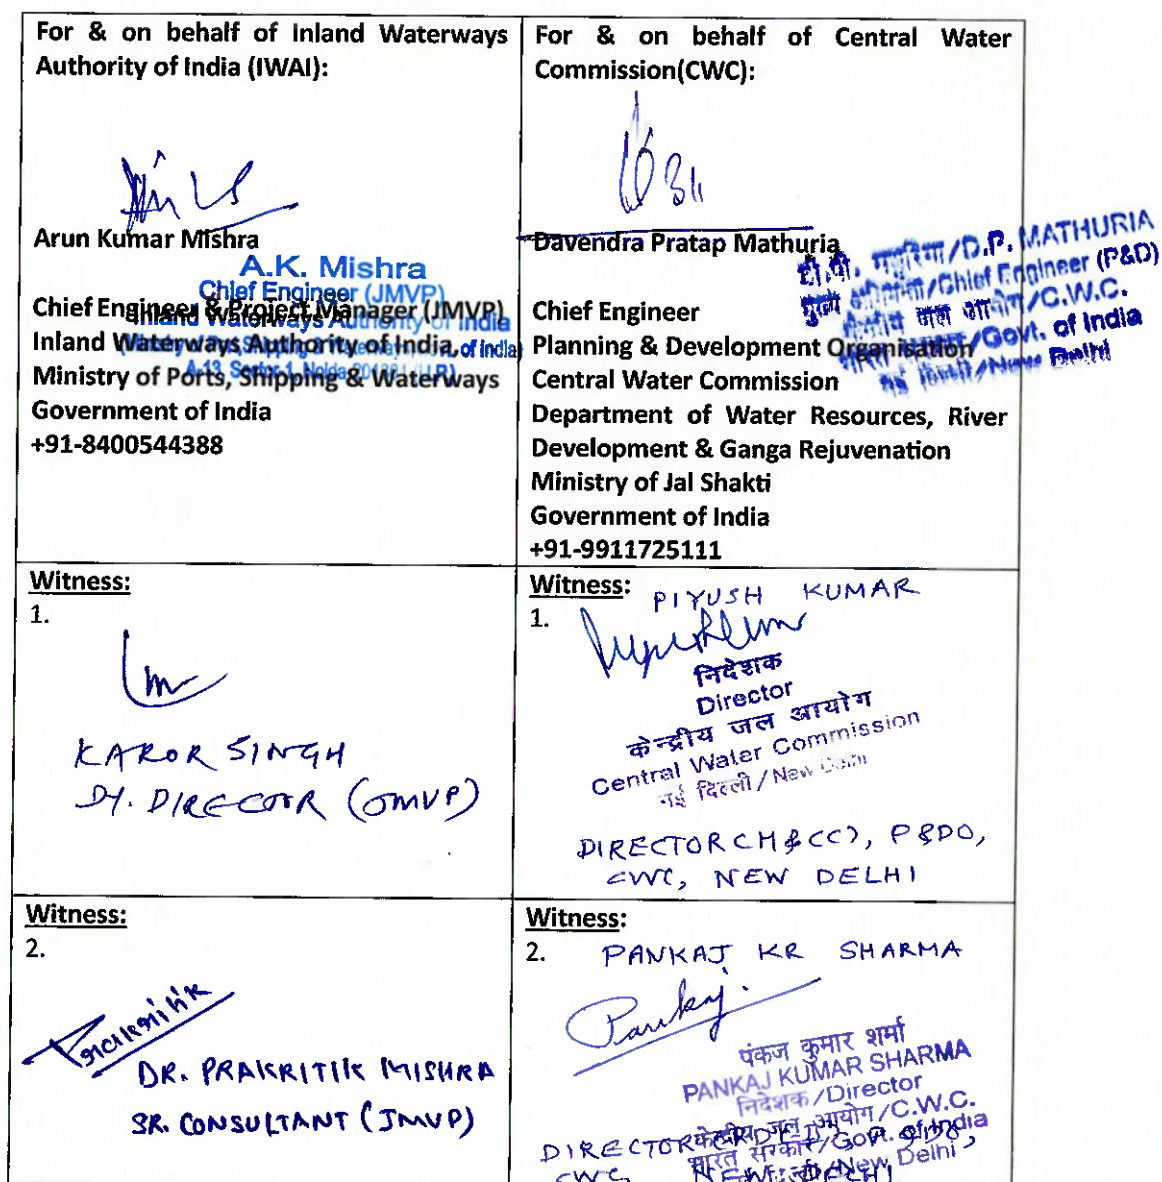 For & on behalf of Inland Waterways
Authority of India (IWAI):
Arun Kumar Mishra
A.K. Mishra
Chief Engineer (JMVP)
Chief Engineer & Project Manager (JMVP)
Inland Waterways Authority of India
Inland Waterways Authority of India,
of India
A-13, Sector-1, Noida
Ministry of Ports, Shipping & Waterways
Government of India
+91-8400544388
For & on behalf of Central Water
Commission(CWC):
Davendra Pratap Mathuria
डी.पी. मथुरिया/D.P. MATHURIA
मुख्य अभियन्ता/Chief Engineer (P&D)
केन्द्रीय जल आयोग/C.W.C.
भारत सरकार/Govt. of India
नई दिल्ली/New Delhi
Chief Engineer
Planning & Development Organisation
Central Water Commission
Department of Water Resources, River
Development & Ganga Rejuvenation
Ministry of Jal Shakti
Government of India
+91-9911725111
Witness:
1.
KAROR SINGH
DY. DIRECTOR (JMVP)
Witness:
PIYUSH KUMAR
1.
निदेशक
Director
केन्द्रीय जल आयोग
Central Water Commission
नई दिल्ली/New Delhi
DIRECTOR (H&CC), P&DO,
CWC, NEW DELHI
Witness:
2.
Prakritik
DR. PRAKRITIK MISHRA
SR. CONSULTANT (JMVP)
Witness:
2. PANKAJ KR SHARMA
Pankaj
पंकज कुमार शर्मा
PANKAJ KUMAR SHARMA
निदेशक/Director
केन्द्रीय जल आयोग/C.W.C.
भारत सरकार/Govt. of India
नई दिल्ली/New Delhi
DIRECTOR
CWC, NEW DELHI